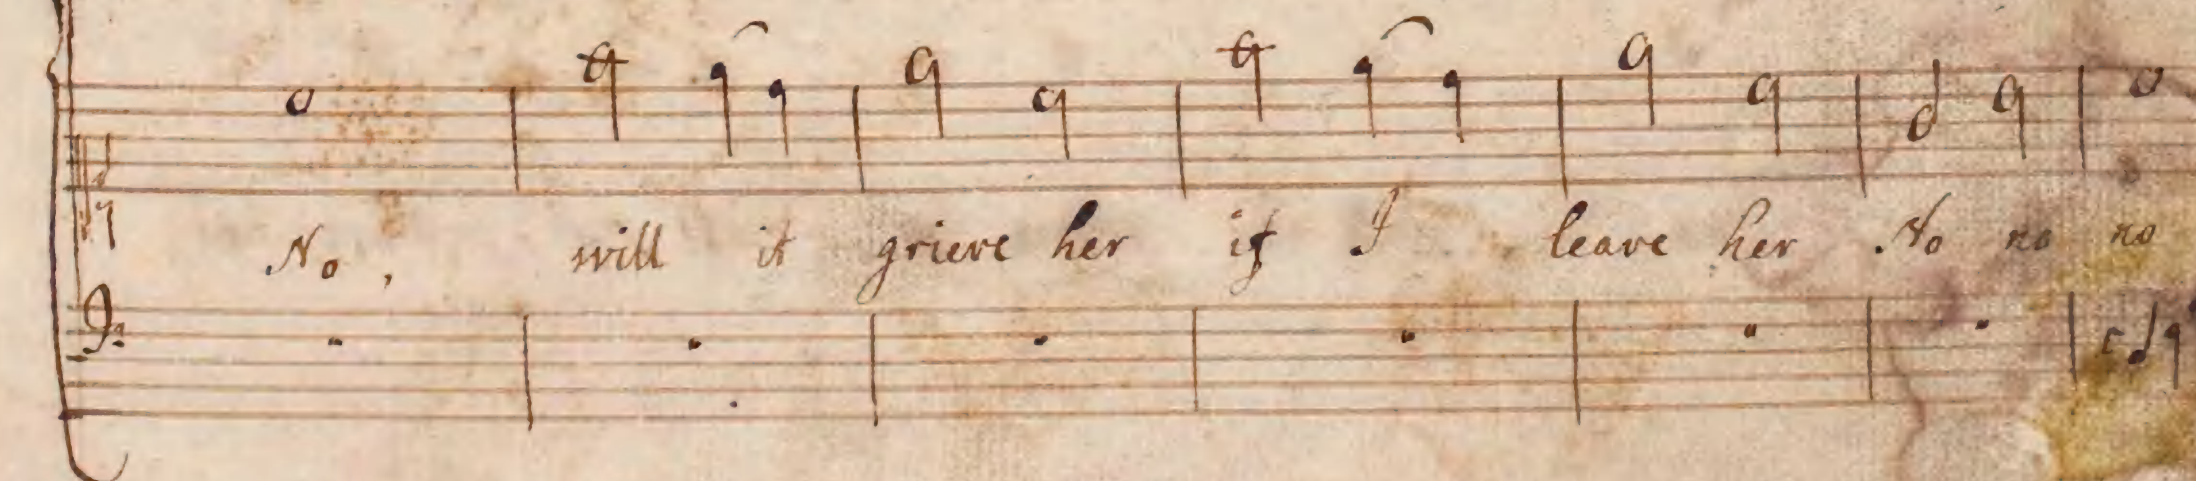 No, will it grieve her if I leave her No no no